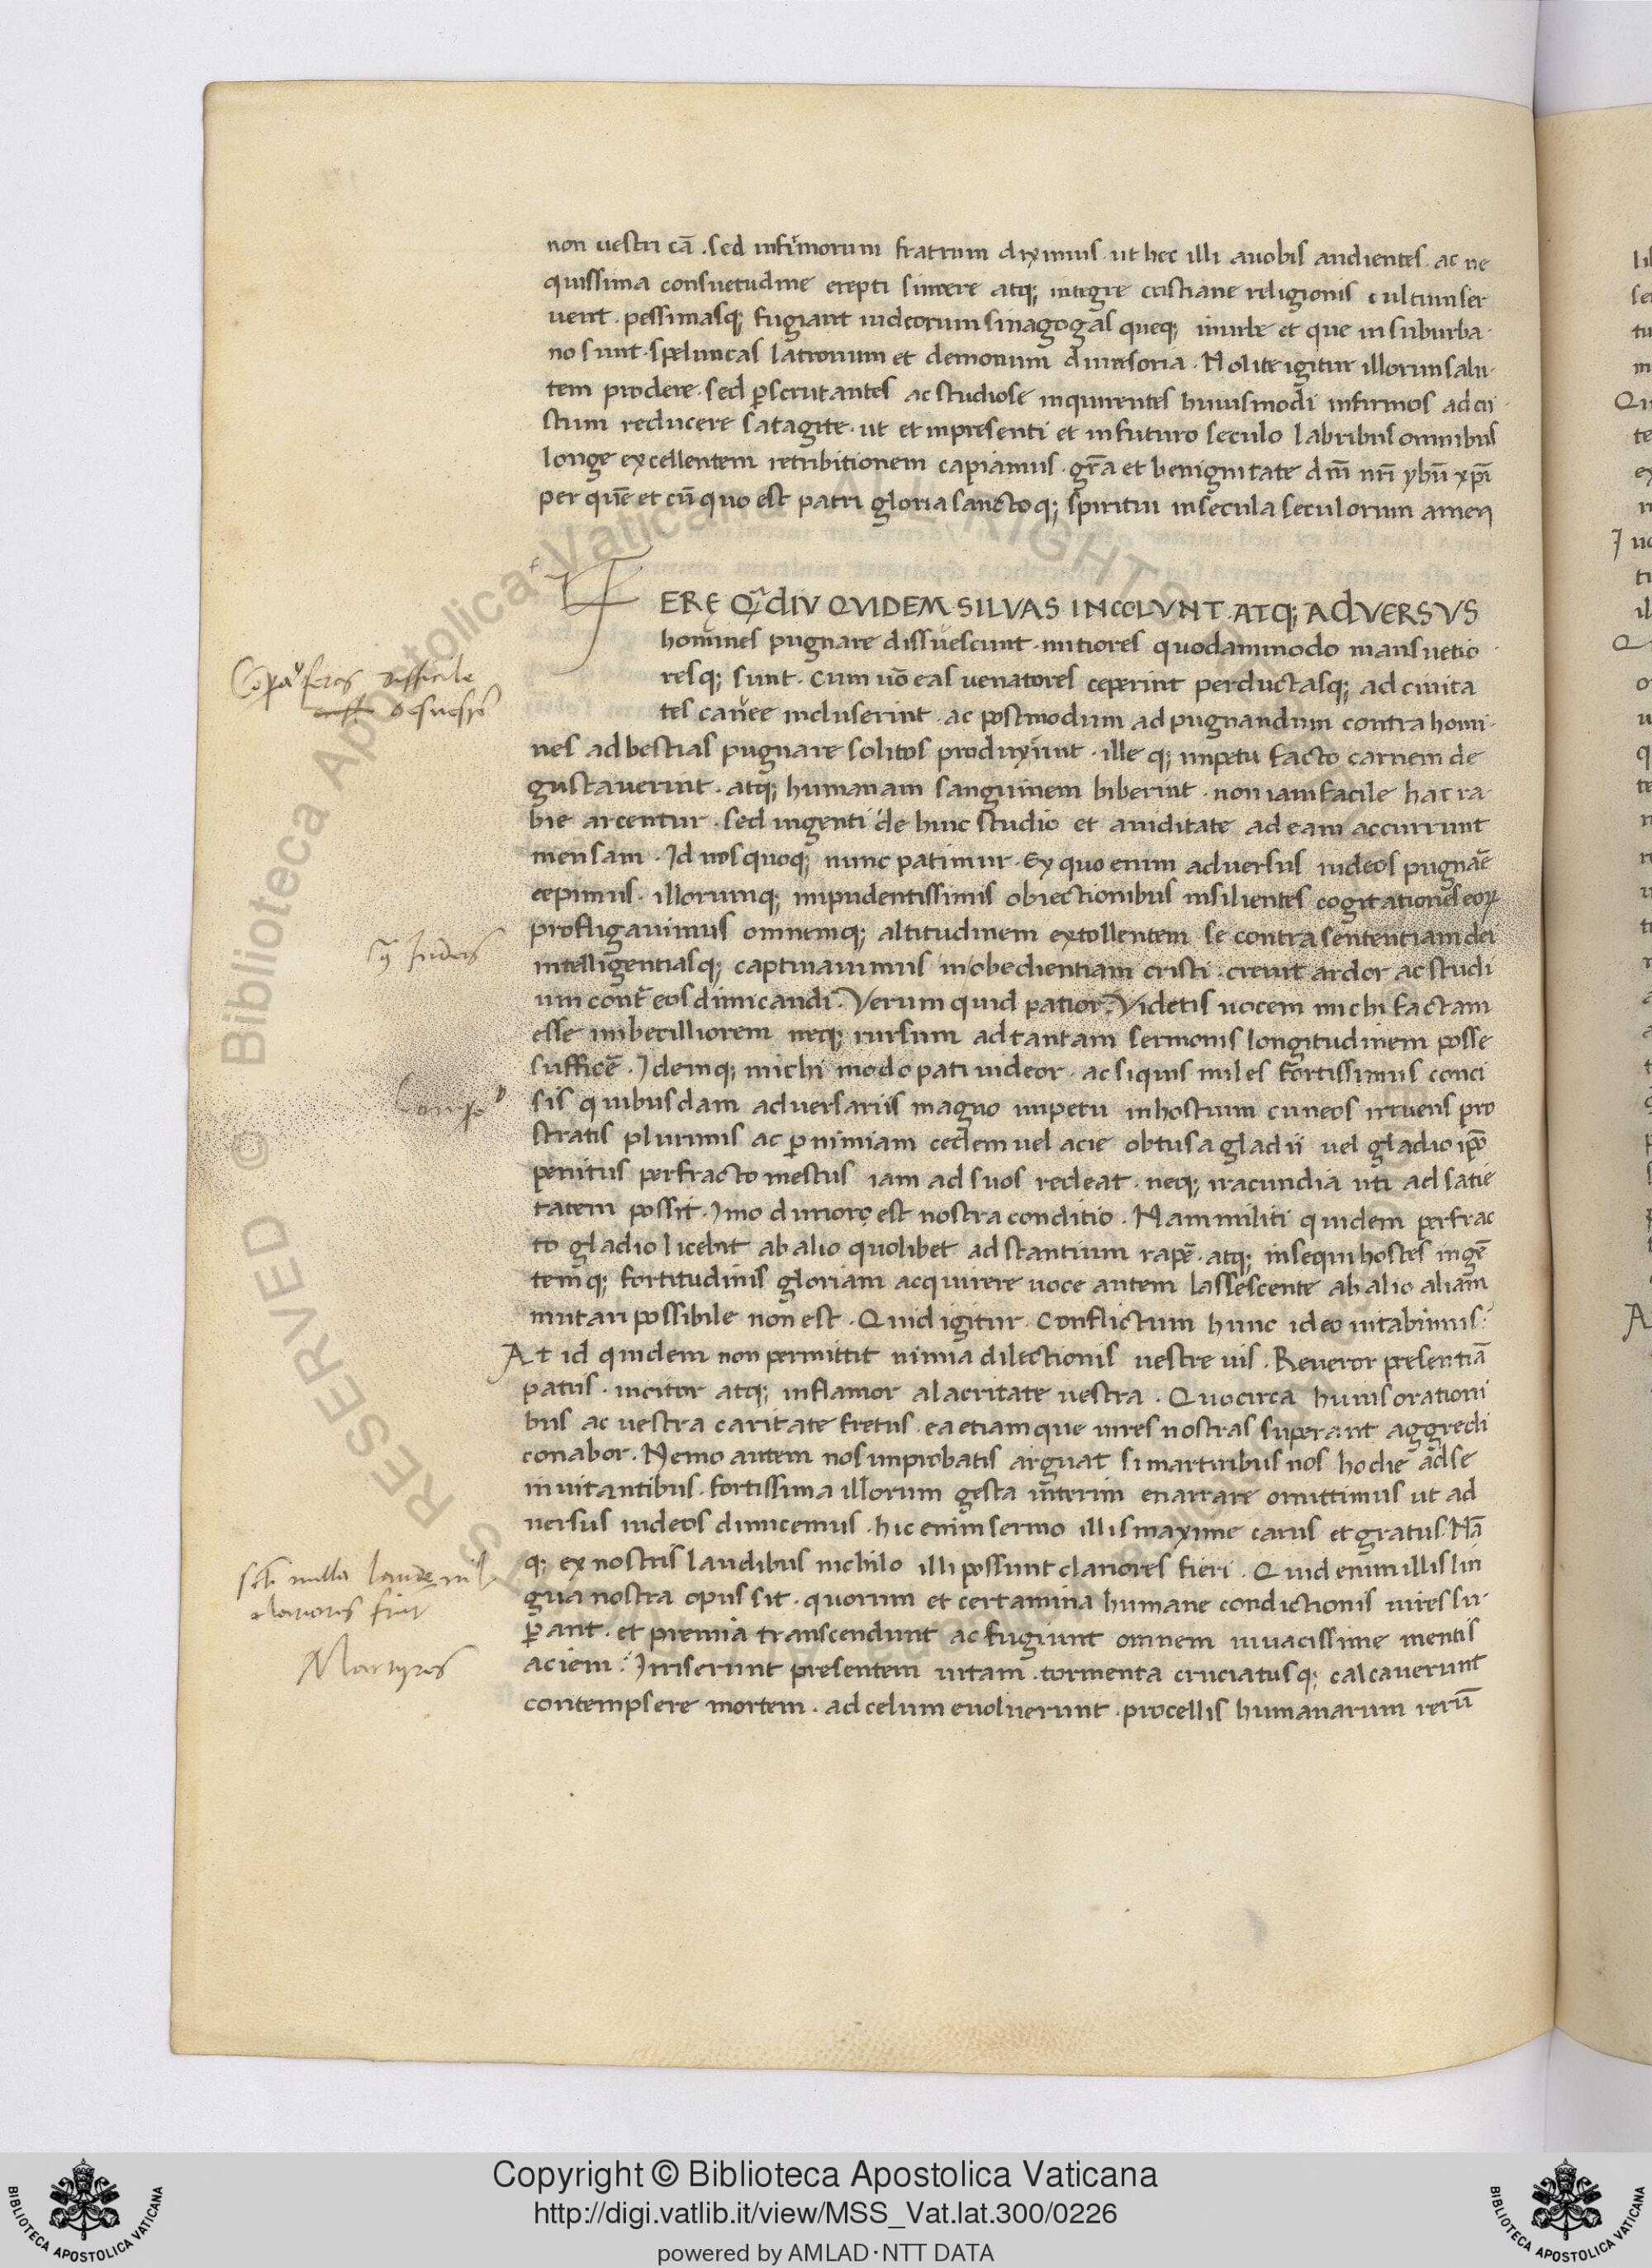 non uestri cā . sed infirmorum fratrum diximus . ut hec illi auobis audientes . ac ne
quissima consuetudine erepti sincere atq; integre cristiane religionis cultum ser
uent . pessimasq; fugiant iudeorum sinagogas queq; inurbe et que in suburba
no sunt . speluncas latronum et demonum diuersoria . Nolite igitur illorum salu
tem prodere . sed pscrutantes ac studiose inquirentes huiusmodi infirmos ad cri
stum reducere satagite . ut et inpresenti et infuturo seculo labribus omnibus
longe excellentem retribitionem capiamus . gr̄a et benignitate dn̄i nr̄i yhū xp̄i
per quē et cū quo est patri gloria sanctoq; spiritui insecula seculorum amen
FERĘ Q̄DIV QVIDEM SILVAS INCOLVNT . ATQ; ADVERSVS
homines pugnare dissuescunt . mitiores quodammodo mansuetio
resq; sunt . cum uō eas uenatores ceperint perductasq; ad ciuita
tes cauee incluserint . ac postmodum ad pugnandum contra homi
nes ad bestias pugnare solitos produxerint . illeq; impetu facto carnem de
gustauerint . atq; humanam sanguinem biberint . non iam facile hac ra
bie arcentur . sed ingenti de hinc studio et auiditate ad eam accurrunt
mensam . Id nos quoq; nunc patimur . Ex quo enim aduersus iudeos pugnāe
cepimus . illorumq; impudentissimis obiectionibus insilientes cogitationes eoꝝ
profligauimus omnemq; altitudinem extollentem se contra sententiam dei
intelligentiasq; captiuauimus in obedientiam cristi . creuit ardor ac studi
um cont̄ eos dimicandi . Verum quid patior? Videtis uocem michi factam
esse imbecilliorem neq; rursum ad tantam sermonis longitudinem posse
sufficē . Idemq; michi modo pati uideor . ac siquis miles fortissimus conci
sis quibusdam aduersariis magno impetu inhostium cuneos irruens pro
stratis plurimis ac p nimiam cedem uel acie obtusa gladii uel gladio ip̄o
penitus perfracto mestus iam ad suos redeat . neq; iracundia uti ad satie
tatem possit . Imo durior est nostra conditio . Nam militi quidem perfrac
to gladio licebit ab alio quolibet adstantium rapē . atq; insequi hostes ingē
temq; fortitudinis gloriam acquirere uoce autem lassescente ab alio aliam
mutari possibile non est . Quid igitur . Conflictum hunc ideo uitabimus?
At id quidem non permittit nimia dilectionis uestre uis . Reueror presentiā
patris . incitor atq; inflamor alacritate uestra . Quocirca huius orationi
bus ac uestra caritate fretus . ea etiam que uires nostras superant aggredi
conabor . Nemo autem nos improbatis arguat si martiribus nos hodie ad se
inuitantibus . fortissima illorum gesta interim enarrare omittimus ut ad
uersus iudeos dimicemus . hic enim sermo illis maxime carus et gratus . Nā
q; ex nostris laudibus nichilo illi possunt clariores fieri . Quid enim illis lin
gua nostra opus sit . quorum et certamina humane condictionis uires su
pant . et premia transcendunt ac fugiunt omnem uiuacissime mentis
aciem? Inriserunt presentem uitam . tormenta cruciatusq; calcauerunt
contempsere mortem . ad celum euoluerunt . procellis humanarum rerū
feras difficile
Iudeos
nulla laude nil
clariores
Martyres
Biblioteca Apostolica Vaticana ALL RIGHTS RESERVED ©
Copyright © Biblioteca Apostolica Vaticana
http://digi.vatlib.it/view/MSS_Vat.lat.300/0226
powered by AMLAD·NTT DATA
BIBLIOTECA APOSTOLICA VATICANA
BIBLIOTECA APOSTOLICA VATICANA